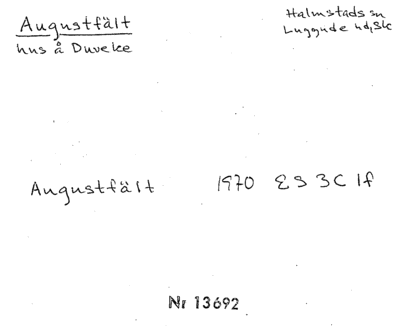 Augustfält
hus å Duveke
Halmstads sn
Luggude hd, Sk
Augustfält 1970 ES 3C 1f
Nr 13692